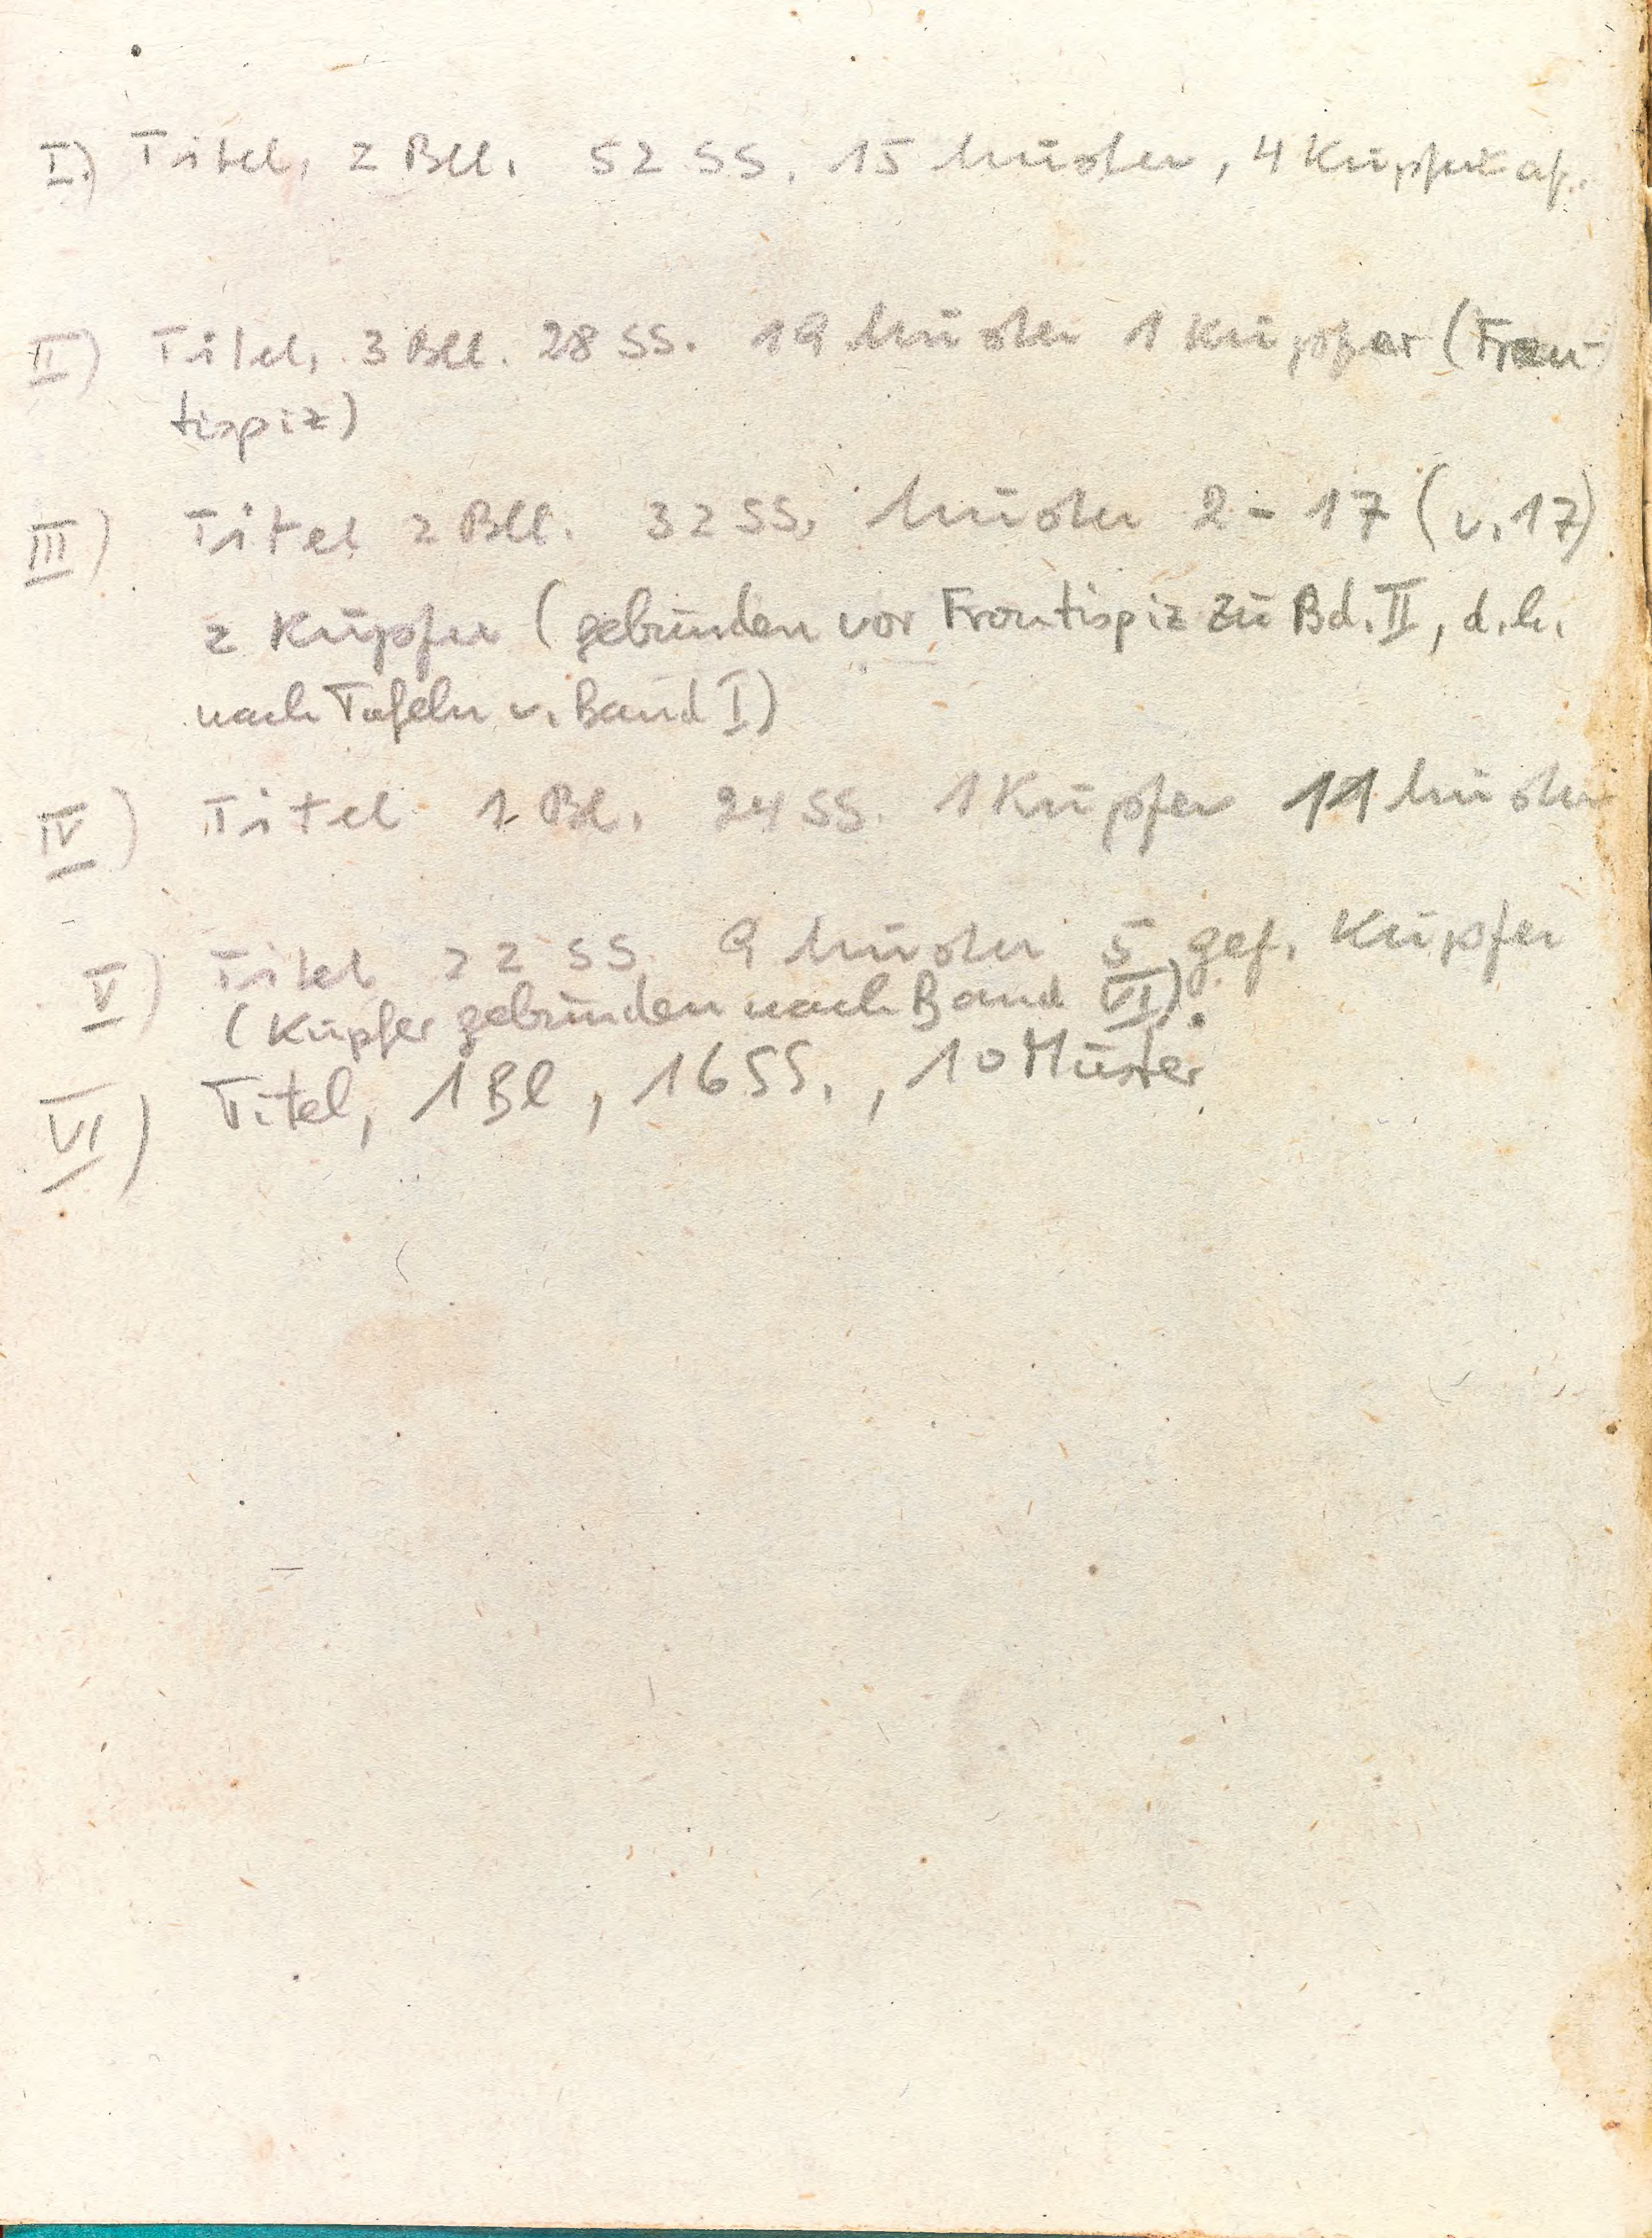 I.) Titel, 2 Bll. 52 SS. 15 Muster, 4 Kupfertaf.
II) Titel, 3 Bll. 28 SS. 19 Muster 1 Kupfer (Fron-
tispiz)
III) Titel 2 Bll. 32 SS. Muster 2-17 (v. 17)
2 Kupfer (gebunden vor Frontispiz zu Bd. II, d.h.
nach Tafeln v. Band I)
IV) Titel 1 Bl. 24 SS. 1 Kupfer 11 Muster
V) Titel 22 SS. 9 Muster 5 gef. Kupfer
(Kupfer gebunden nach Band VI).
VI) Titel, 1 Bl, 16 SS., 10 Muster